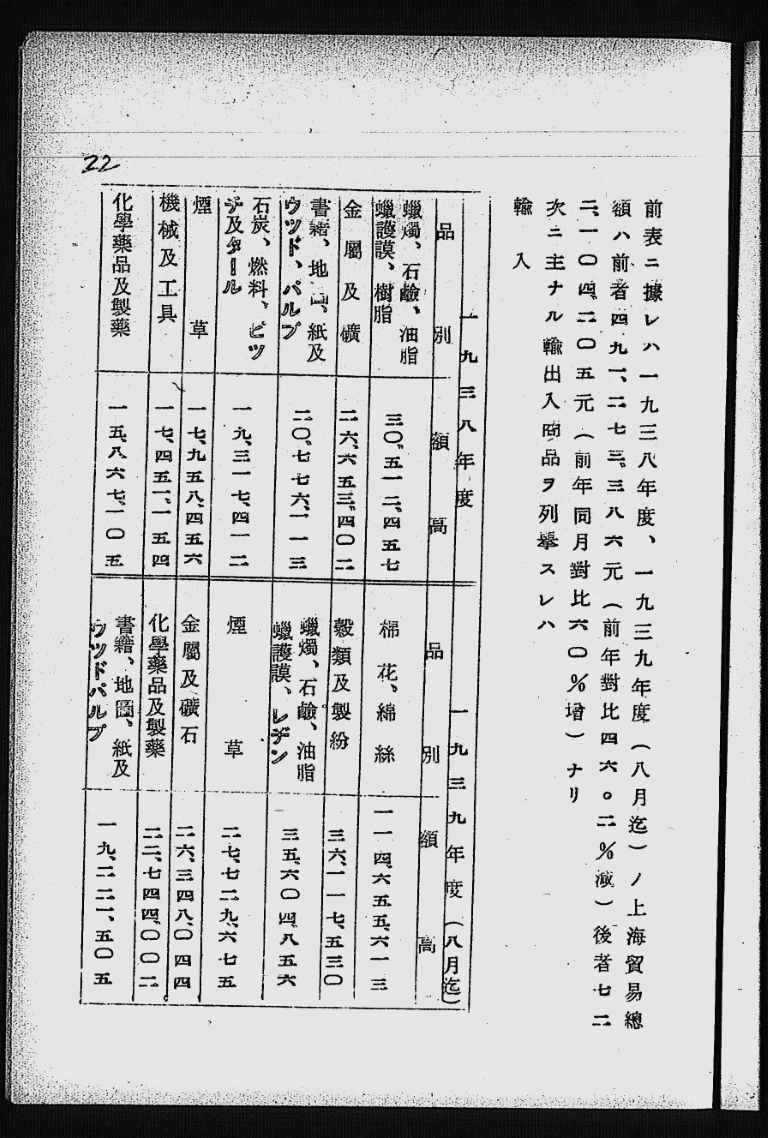 前表ニ據レハ一九三八年度、一九三九年度（八月迄）ノ上海貿易總
額ハ前者四九一、二七三、三八六元（前年對比四六。二％減）後者七二
二、一〇四、二〇五元（前年同月對比六〇％增）ナリ
次ニ主ナル輸出入商品ヲ列擧スレハ
輸入
一九三八年度
品別
額高
蠟燭、石鹼、油脂
蠟護謨、樹脂
三〇、五一二、四五七
金屬及礦
二六、六五三、四〇二
書籍、地圖、紙及
ウツド、パルプ
二〇、七七六、一一三
石炭、燃料、ピツ
チ及タール
一九、三一七、四一二
煙草
一七、九五八、四五六
機械及工具
一七、四五一、一五四
化學藥品及製藥
一五、八六七、一〇五
一九三九年度（八月迄）
品別
額高
棉花、綿絲
一一四、六五五、六一三
穀類及製紛
三六、一一七、五三〇
蠟燭、石鹼、油脂
蠟護謨、レヂン
三五、六〇四、八五六
煙草
二七、七二九、六七五
金屬及礦石
二六、三四八、〇四四
化學藥品及製藥
二二、七四四、〇〇二
書籍、地圖、紙及
ウツドパルプ
一九、二二一、五〇五
22